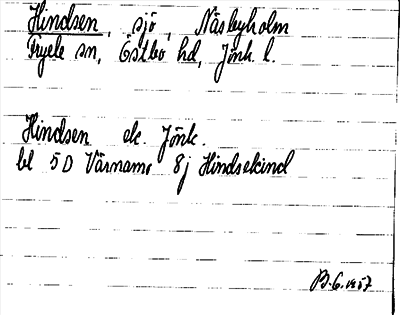 Hindsen, sjö, Näsbyholm
Fryele sn, Östbo hd, Jönk. l.
Hindsen ek. Jönk.
bl 5D Värnamo 8j Hindsekind